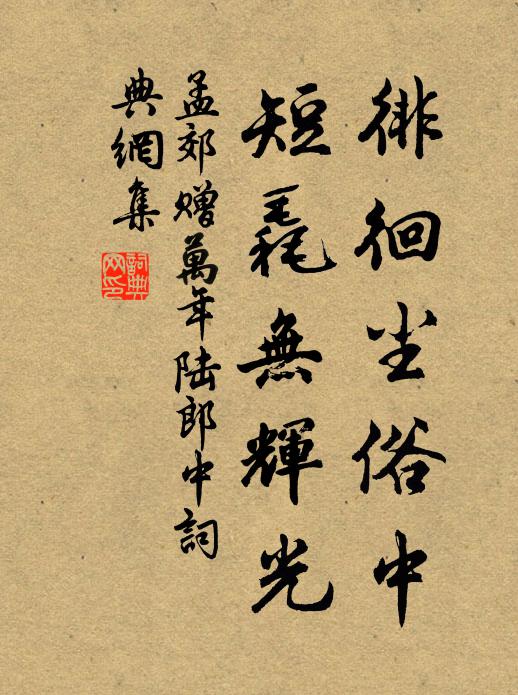 徘徊尘俗中
短毳無輝光
孟郊赠萬年陆郎中詞
典網集
詞典网印